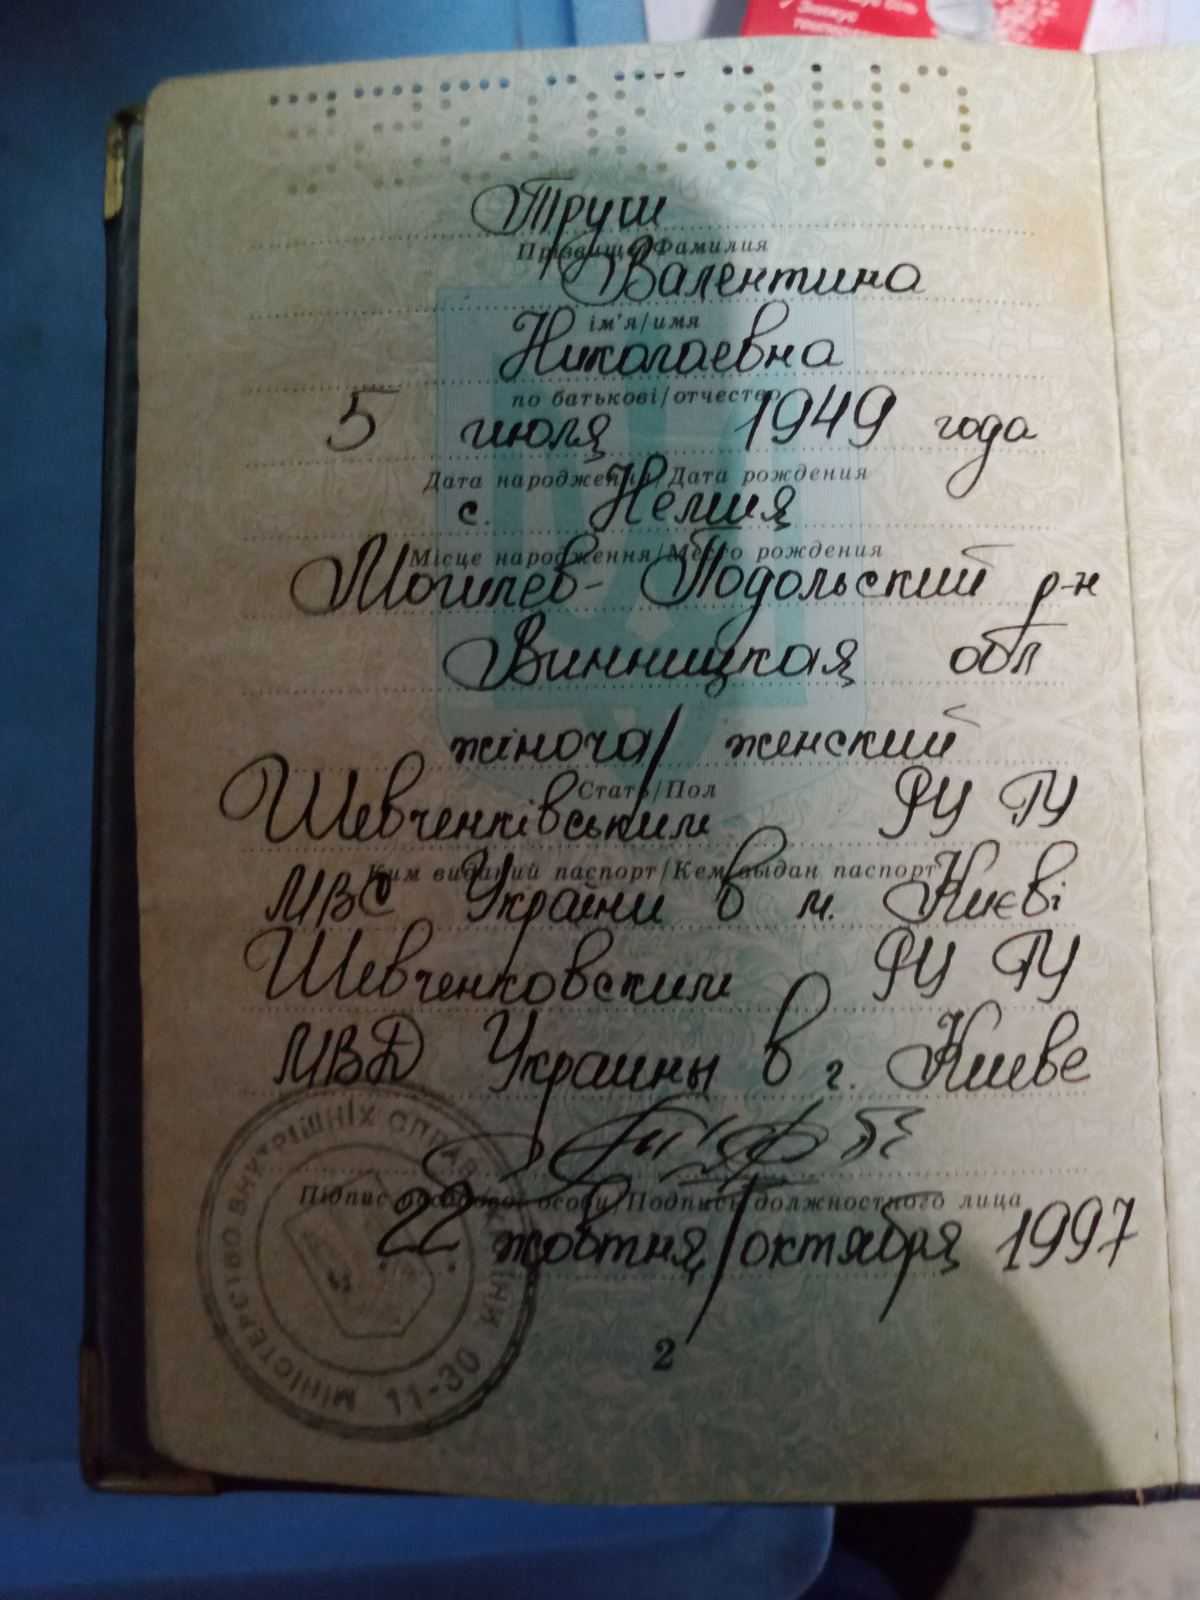 Знижує
Труш
Прізвище/Фамилия
Валентина
ім'я/имя
Николаевна
по батькові/отчество
5 июля 1949 года
Дата народження/Дата рождения
с. Немия
Місце народження/Место рождения
Могилев-Подольский р-н
Винницкая обл
жіноча/женский
Стать/Пол
Шевченківським РУ ГУ
Ким виданий паспорт/Кем выдан паспорт
МВС України в м. Києві
Шевченковским РУ ГУ
МВД Украины в г. Киеве
Підпис посадової особи/Подпись должностного лица
22 жовтня/октября 1997
МІНІСТЕРСТВО ВНУТРІШНІХ СПРАВ УКРАЇНИ
11-30
2